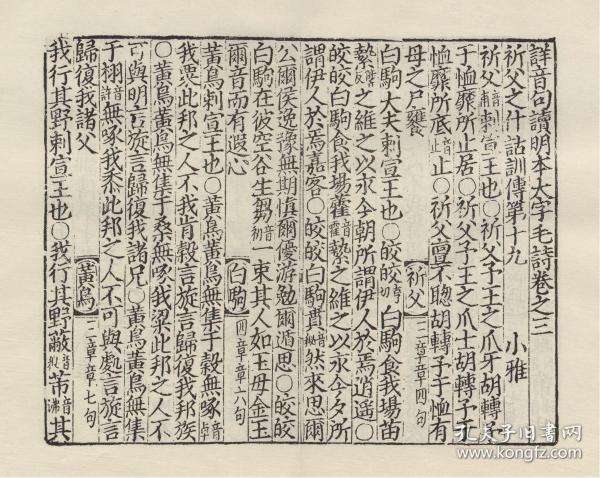 詳音句讀明本大字毛詩卷之三
祈父之什詁訓傳第十九 小雅
祈父音甫刺宣王也○祈父予王之爪牙胡轉予
于恤靡所止居○祈父予王之爪士胡轉予于
恤靡所底音止止○祈父亶不聰胡轉予于恤有
母之尸饔 祈父三章章四句
白駒大夫刺宣王也○皎皎白駒食我場苗
縶之維之以永今朝所謂伊人於焉逍遙○
皎皎白駒食我場藿音霍縶之維之以永今夕所
謂伊人於焉嘉客○皎皎白駒賁音然來思爾
公爾侯逸豫無期慎爾優游勉爾遁思○皎皎
白駒在彼空谷生芻音初一束其人如玉毋金玉
爾音而有遐心 白駒四章章六句
黃鳥刺宣王也○黃鳥黃鳥無集于榖無啄音卓
我粟此邦之人不我肯榖言旋言歸復我邦族
○黃鳥黃鳥無集于桑無啄我粱此邦之人不
可與明言旋言歸復我諸兄○黃鳥黃鳥無集
于栩音許無啄我黍此邦之人不可與處言旋言
歸復我諸父 黃鳥三章章七句
我行其野刺宣王也○我行其野蔽音芾音沸其
孔夫子旧书网
www.kongfz.com